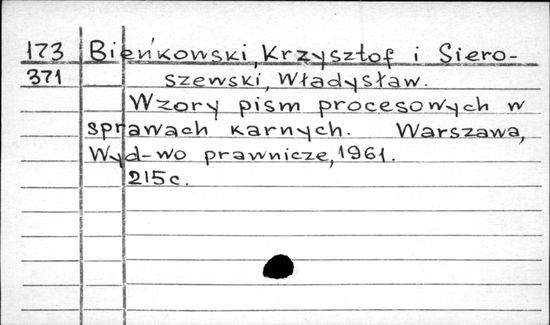 173 Bieńkowski, Krzysztof i Siero-
371 szewski, Władysław.
Wzory pism procesowych w
sprawach karnych. Warszawa,
Wyd-wo prawnicze, 1961.
215c.